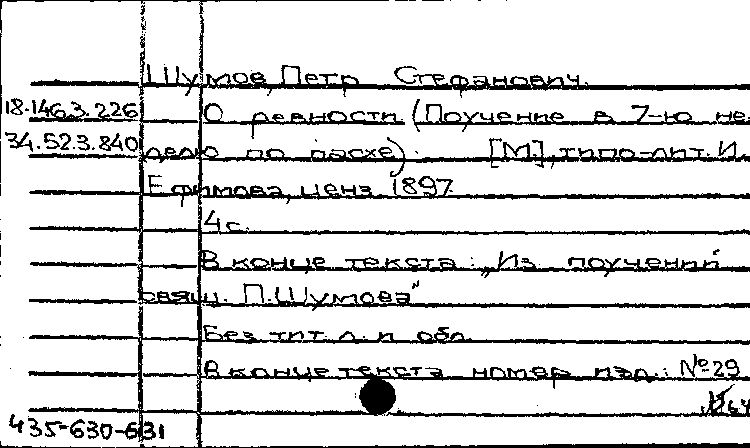 Шумов, Петр Стефанович.
18.146.3.226 О ревности (Поучение в 7-ю не-
34.52.3.840 делю по пасхе). [М], типо-лит. И.
Ефимова, ценз. 1897.
4 с.
В конце текста: „Из поучений
свящ. П. Шумова"
Без тит. л. и обл.
В конце текста номер изд.: № 29
435-630-631